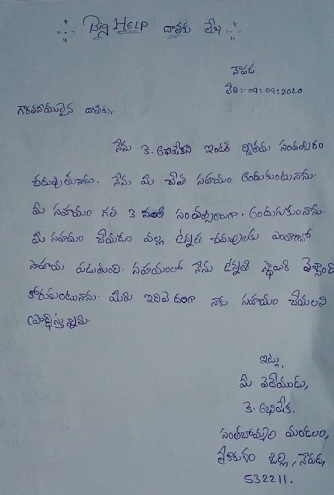 :: పిల్ల HELP దాతకు లేఖ ::
తేది: 09:09:2020
గౌరవనీయులైన దాతకు,
నేను కె. అభిషేక్ ఇంటర్ ద్వితీయ సంవత్సరం
చదువుతున్నాను. నేను మీ చేత సహాయం అందుకుంటున్నాను.
మీ సహాయం గత 3 సంవత్సరాలుగా అందుకుంటున్నాను.
మీ సహాయం చేయడం వల్ల ఉన్నత చదువులకు ఎంతగానో
సహాయ పడుతుంది. సహాయంతో నేను ఉన్నత స్థాయికి వెళ్ళాలని
కోరుకుంటున్నాను. మీరు ఇదివిధంగా నాకు సహాయం చేయాలని
ప్రార్థిస్తున్నాను.
ఇట్లు,
మీ విధేయుడు,
కె. అభిషేక్.
సంతబొమ్మాళి మండలం,
శ్రీకాకుళం జిల్లా,
532211.